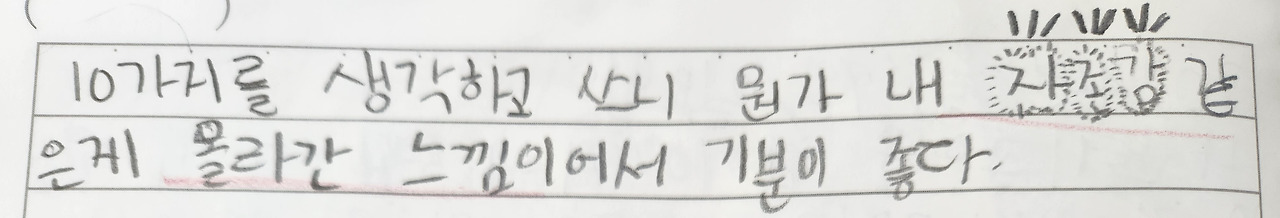 10가지를 생각하고 쓰니 뭔가 내 자존감 같
은게 올라간 느낌이어서 기분이 좋다.